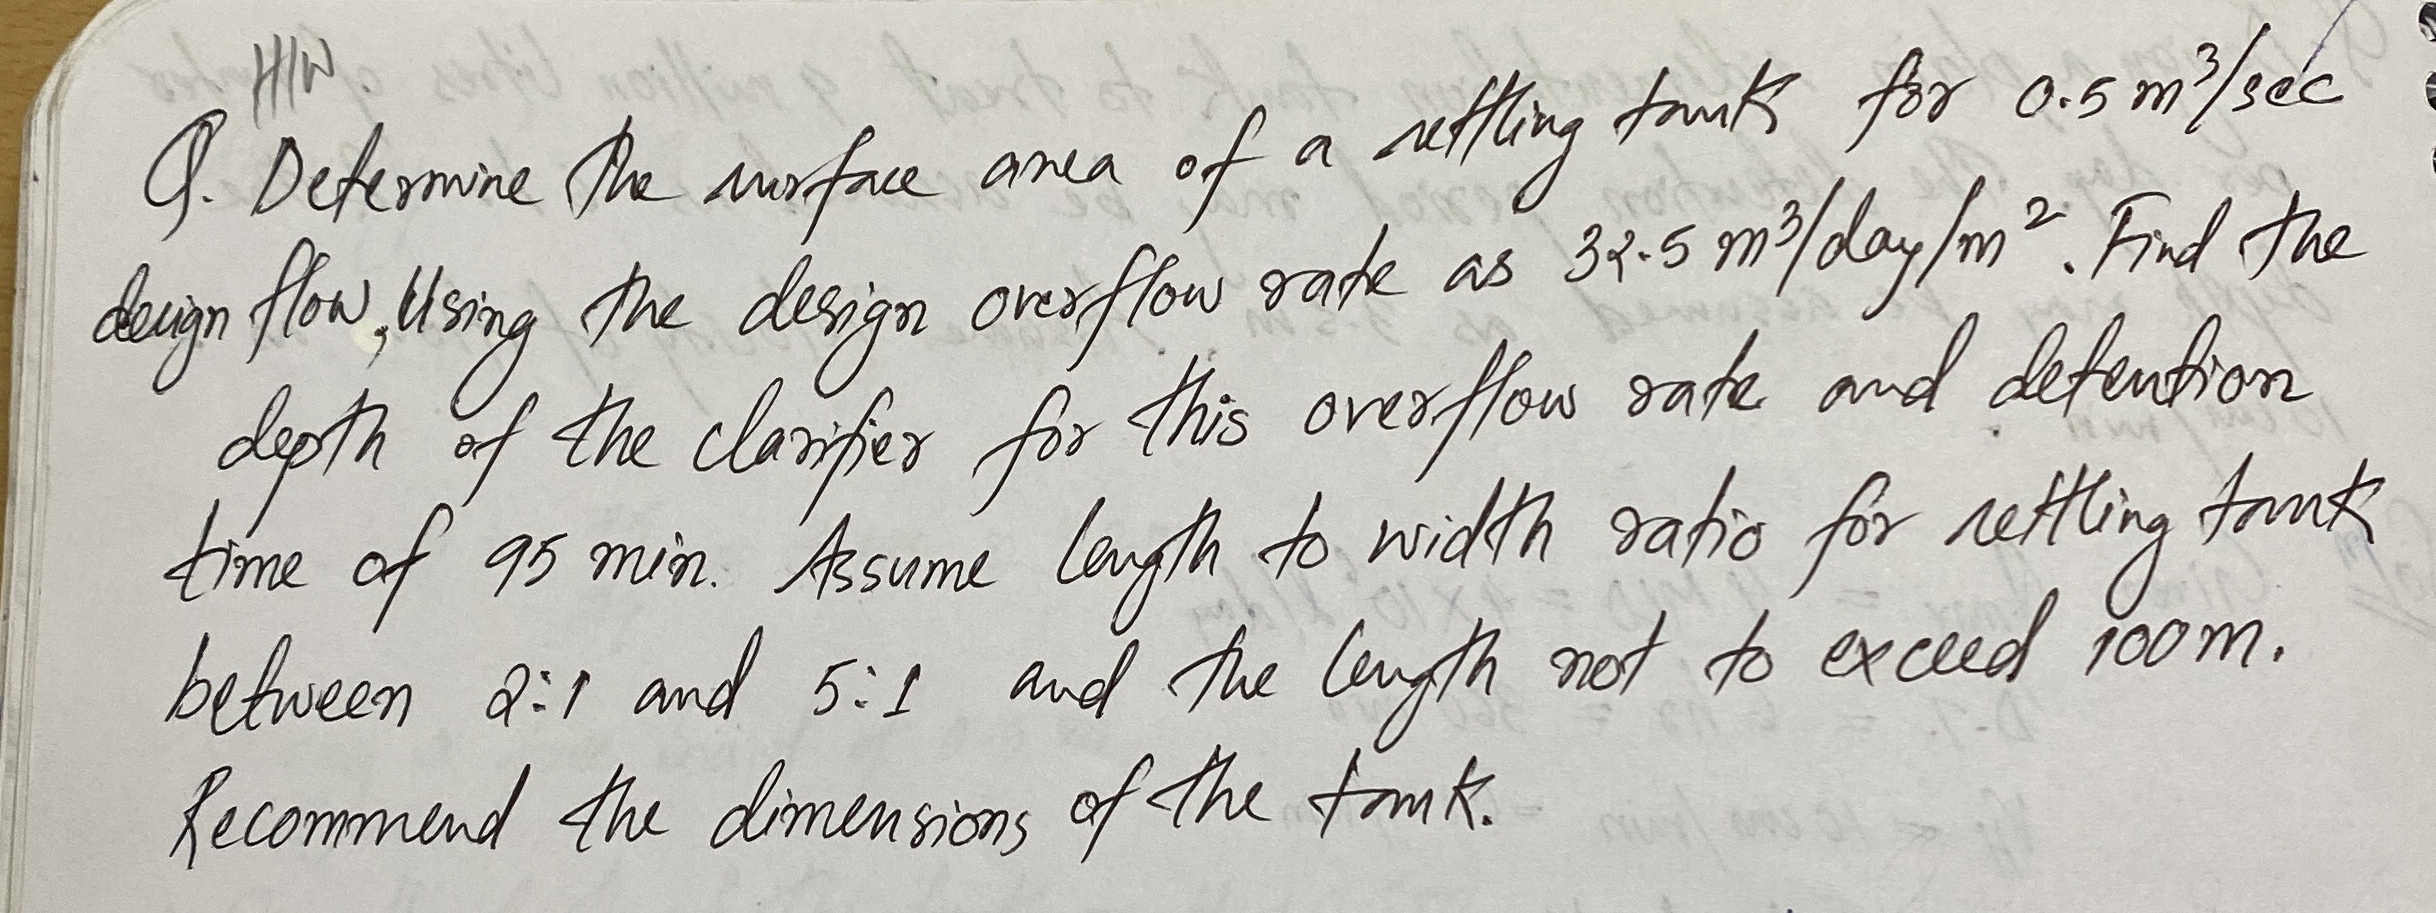 H/W
Q. Determine the surface area of a settling tank for 0.5 m³/sec
design flow, Using the design overflow rate as 32.5 m³/day/m². Find the
depth of the clarifier for this overflow rate and detention
time of 95 min. Assume length to width ratio for settling tank
between 2:1 and 5:1 and the length not to exceed 100m.
Recommend the dimensions of the tank.